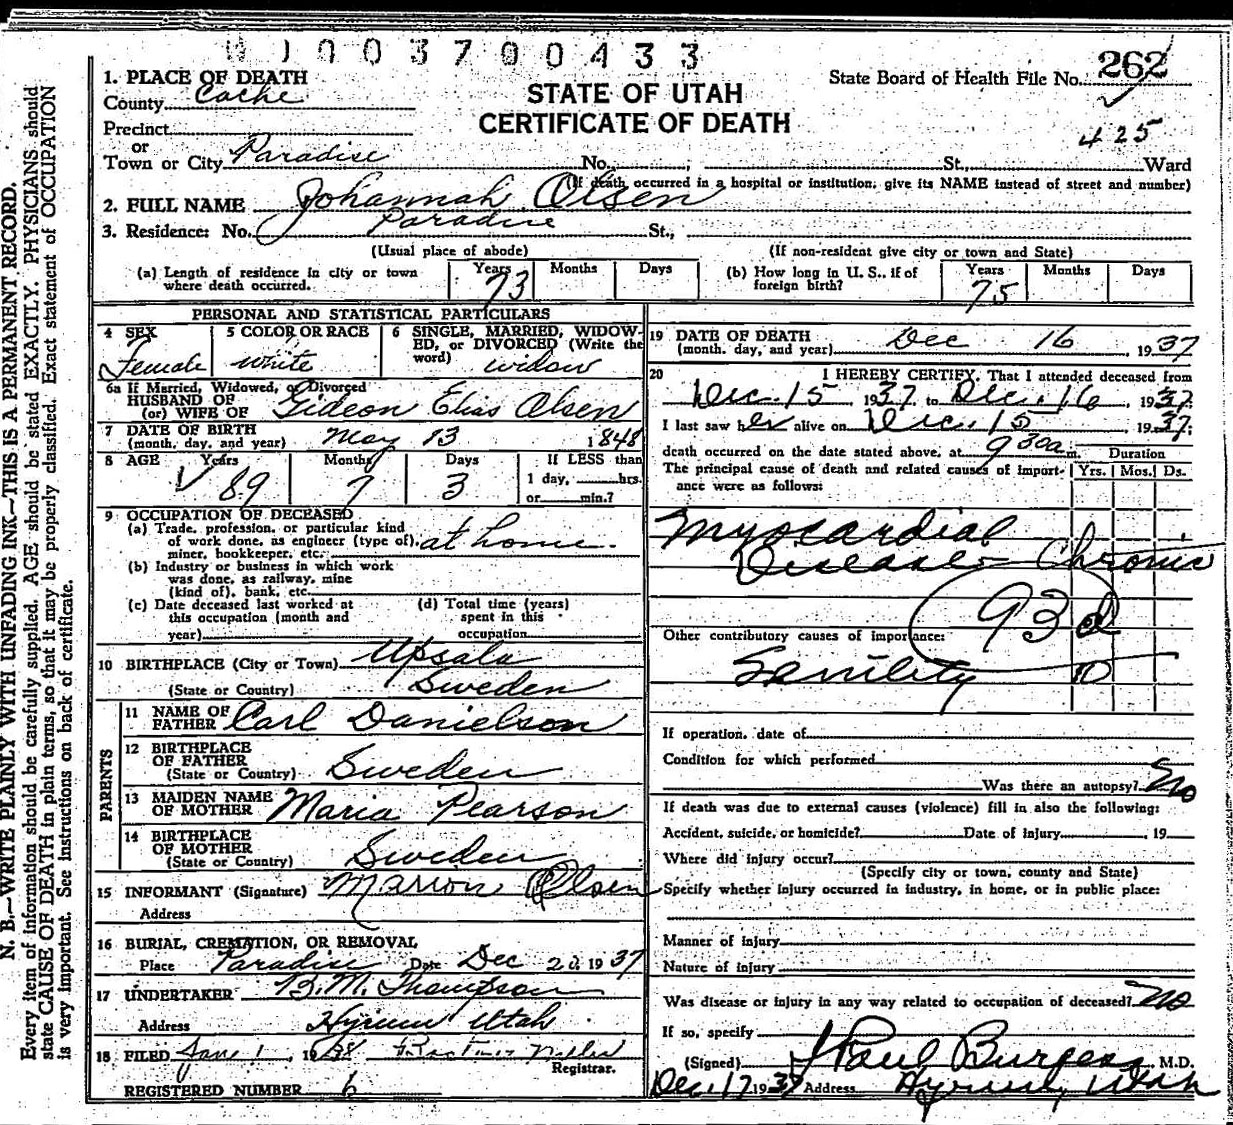 0100370 0433
1. PLACE OF DEATH
County Cache
STATE OF UTAH
CERTIFICATE OF DEATH
State Board of Health File No. 262
425
Precinct
or
Town or City Paradise No. ; St., Ward
(If death occurred in a hospital or institution, give its NAME instead of street and number)
2. FULL NAME Johannah Olsen
3. Residence: No. Paradise St.,
(Usual place of abode) (If non-resident give city or town and State)
(a) Length of residence in city or town where death occurred. Years 73 Months Days
(b) How long in U. S., if of foreign birth? Years 75 Months Days
PERSONAL AND STATISTICAL PARTICULARS
4 SEX Female
5 COLOR OR RACE White
6 SINGLE, MARRIED, WIDOWED, or DIVORCED (Write the word) widow
6a If Married, Widowed, or Divorced
HUSBAND OF
(or) WIFE OF Gideon Elias Olsen
7 DATE OF BIRTH
(month, day, and year) May 13 1848
8 AGE Years 89 Months 7 Days 3 If LESS than
1 day, hrs.
or min.?
9 OCCUPATION OF DECEASED
(a) Trade, profession, or particular kind
of work done, as engineer (type of), at home.
miner, bookkeeper, etc.
(b) Industry or business in which work
was done, as railway, mine
(kind of), bank, etc.
(c) Date deceased last worked at
this occupation (month and
year)
(d) Total time (years)
spent in this
occupation
10 BIRTHPLACE (City or Town) Upsala
(State or Country) Sweden
PARENTS
11 NAME OF
FATHER Carl Danielson
12 BIRTHPLACE
OF FATHER
(State or Country) Sweden
13 MAIDEN NAME
OF MOTHER Maria Pearson
14 BIRTHPLACE
OF MOTHER
(State or Country) Sweden
15 INFORMANT (Signature) Marion Olsen
Address
16 BURIAL, CREMATION, OR REMOVAL
Place Paradise Date Dec 20 1937
17 UNDERTAKER B. M. Thompson
Address Hyrum Utah.
18 FILED Jan 1, 1938
Registrar.
REGISTERED NUMBER 6
19 DATE OF DEATH
(month, day, and year) Dec 16, 1937
20 I HEREBY CERTIFY, That I attended deceased from
Dec. 15 1937, to Dec. 16, 1937.
I last saw her alive on Dec. 15 1937;
death occurred on the date stated above, at 9 30 a m. Duration
The principal cause of death and related causes of importance were as follows: Yrs. Mos. Ds.
Myocardial
Disease - Chronic
93 d
Other contributory causes of importance:
Senility 10
If operation, date of
Condition for which performed
Was there an autopsy? No
If death was due to external causes (violence) fill in also the following:
Accident, suicide, or homicide? Date of injury , 19
Where did injury occur?
(Specify city or town, county and State)
Specify whether injury occurred in industry, in home, or in public place:
Manner of injury
Nature of injury
Was disease or injury in any way related to occupation of deceased? No
If so, specify
(Signed) J Paul Burgess, M.D.
Dec. 17 1937 Address Hyrum, Utah
N. B.—WRITE PLAINLY WITH UNFADING INK—THIS IS A PERMANENT RECORD.
Every item of information should be carefully supplied. AGE should be stated EXACTLY. PHYSICIANS should
state CAUSE OF DEATH in plain terms, so that it may be properly classified. Exact statement of OCCUPATION
is very important. See instructions on back of certificate.